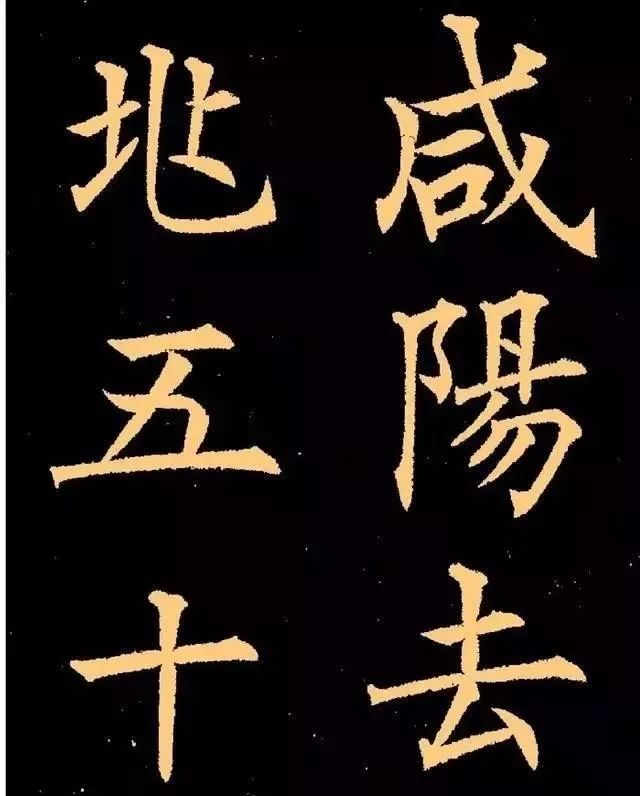 咸陽去
五十